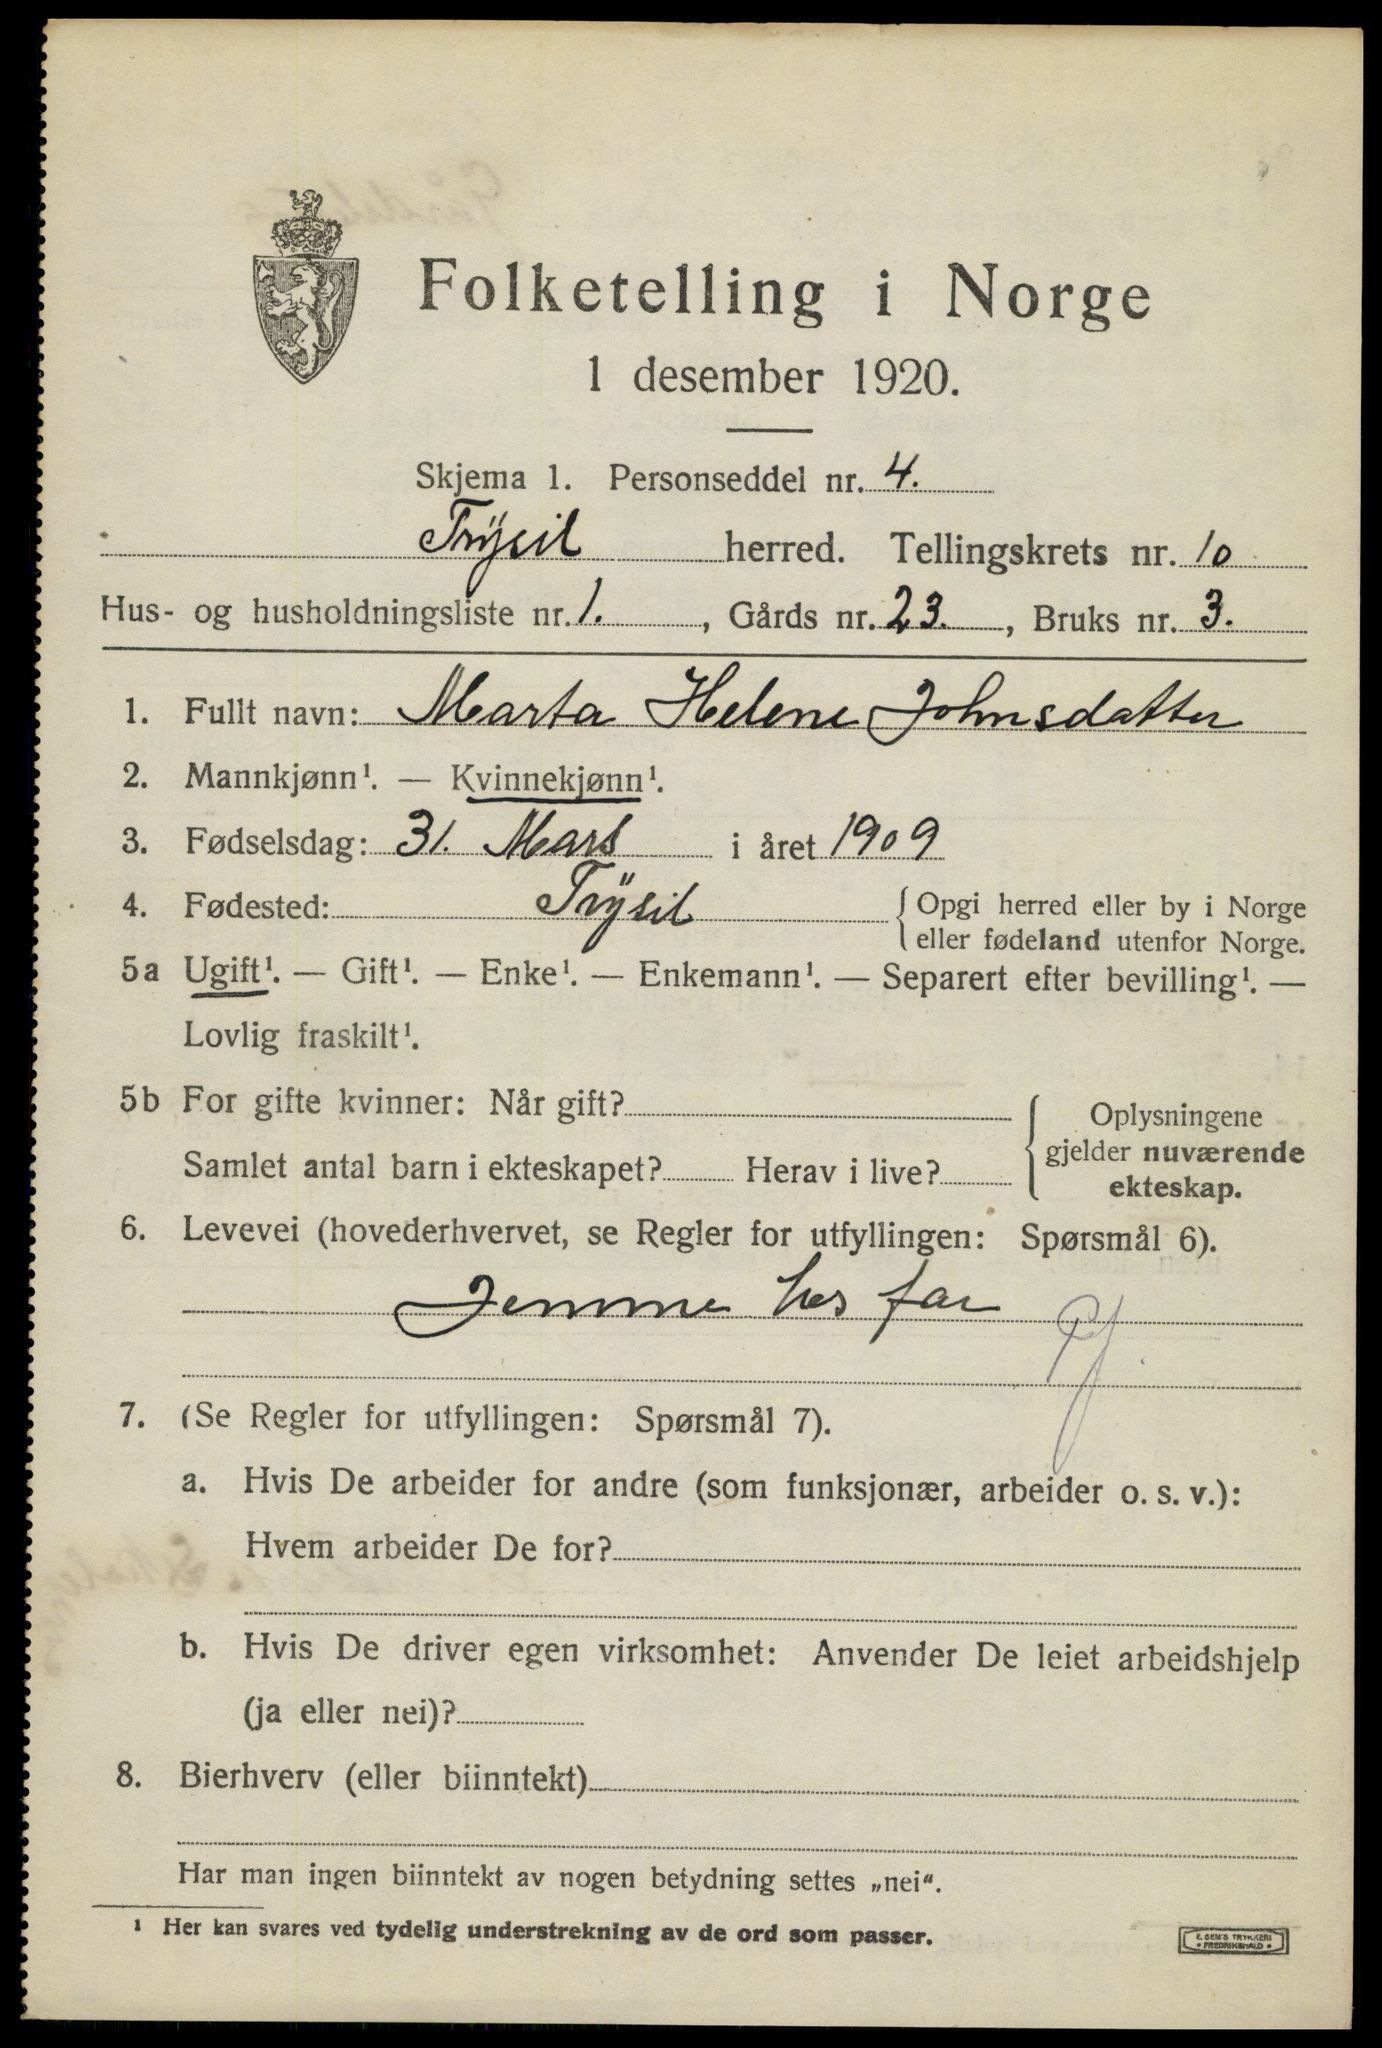 Folketelling i Norge
1 desember 1920.
Skjema 1. Personseddel nr. 4.
Trysil herred. Tellingskrets nr. 10
Hus- og husholdningsliste nr. 1. , Gårds nr. 23. , Bruks nr. 3.
1. Fullt navn: Marta Helene Johnsdatter
2. Mannkjønn¹. — Kvinnekjønn¹.
3. Fødselsdag: 31. Mars i året 1909
4. Fødested: Trysil { Opgi herred eller by i Norge
eller fødeland utenfor Norge.
5a Ugift¹. — Gift¹. — Enke¹. — Enkemann¹. — Separert efter bevilling¹. —
Lovlig fraskilt¹.
5b For gifte kvinner: Når gift?
Samlet antal barn i ekteskapet? Herav i live?
{ Oplysningene
gjelder nuværende
ekteskap.
6. Levevei (hovederhvervet, se Regler for utfyllingen: Spørsmål 6).
Jemme hos far
7. (Se Regler for utfyllingen: Spørsmål 7).
a. Hvis De arbeider for andre (som funksjonær, arbeider o. s. v.):
Hvem arbeider De for?
b. Hvis De driver egen virksomhet: Anvender De leiet arbeidshjelp
(ja eller nei)?
8. Bierhverv (eller biinntekt)
Har man ingen biinntekt av nogen betydning settes „nei“.
¹ Her kan svares ved tydelig understrekning av de ord som passer.
E. SEM'S TRYKKERI
• FREDRIKSHALD •